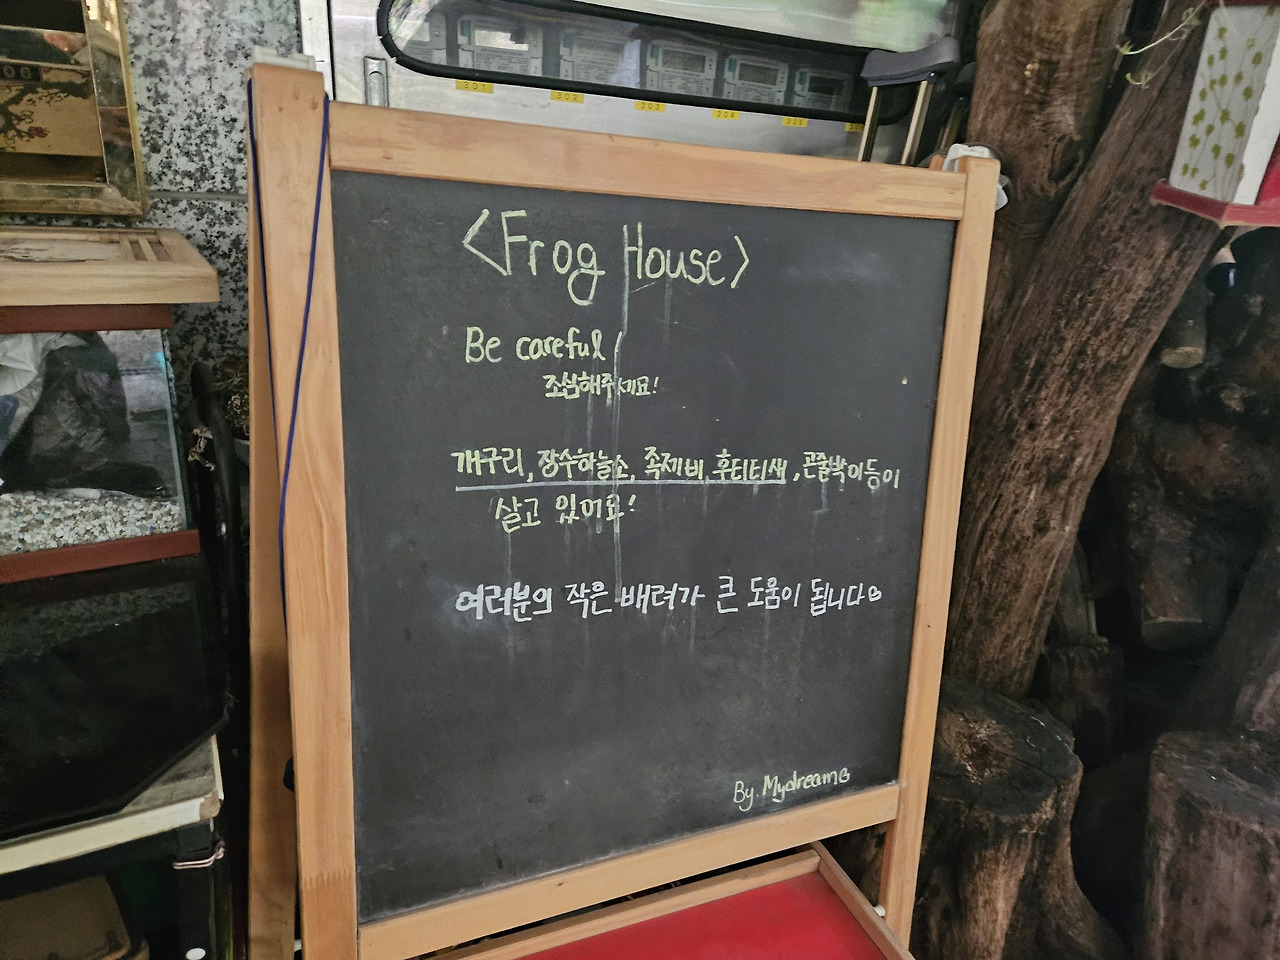 301 302 303 304 305
<Frog House>
Be careful!
조심해주세요!
개구리, 장수하늘소, 족제비, 후티티새, 곤줄박이등이
살고 있어요!
여러분의 작은 배려가 큰 도움이 됩니다♡
By. Mydream